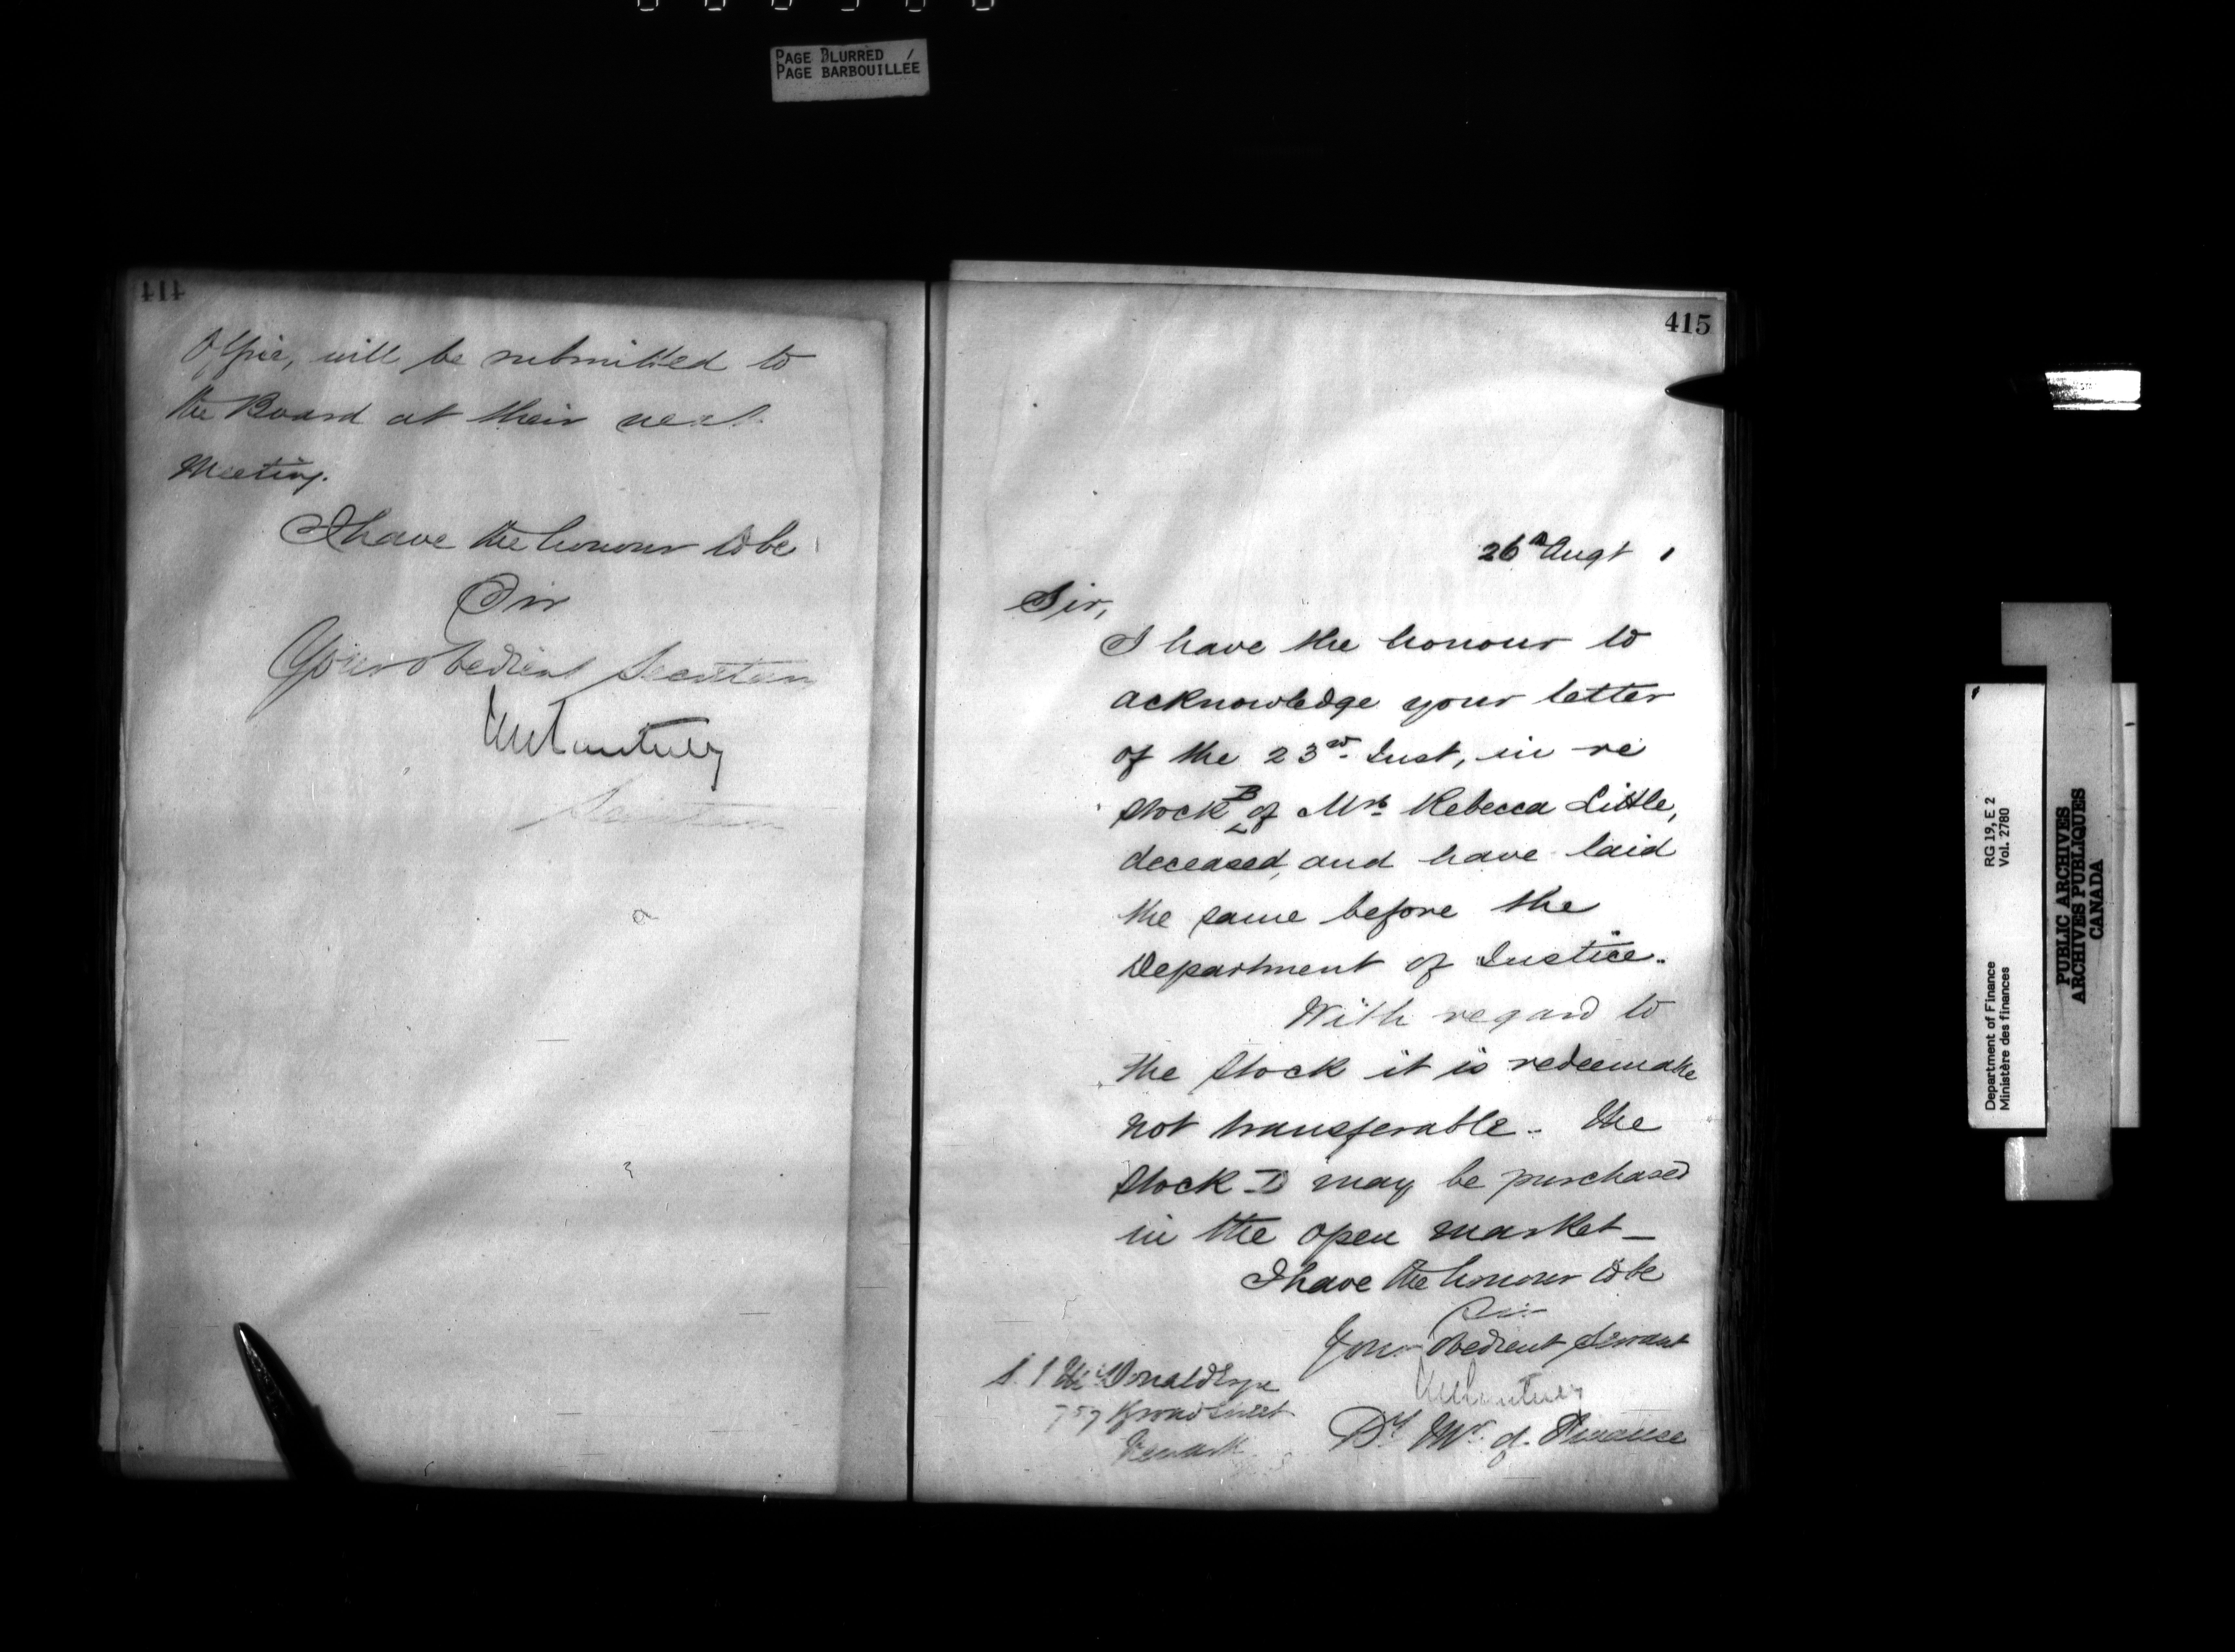 PAGE BLURRED
PAGE BARBOUILLÉE
414
Office, will be submitted to
the Board at their next
Meeting.
I have the honour to be
Sir
Your obedient
415
26th Augt 1
Sir,
I have the honour to
acknowledge your letter
of the 23rd Inst, in re
Stock B of Mrs Rebecca Little,
deceased, and have laid
the same before the
Department of Justice.
With regard to
the Stock it is redeemable
not transferable. The
Stock D may be purchased
in the open market_
I have the honour to be
Sir
Your Obedient Servant
Dy Mr of Finance
McDonald Esqre
757 Broad Street
Newark
Department of Finance
Ministère des finances
RG 19, E 2
Vol. 2780
PUBLIC ARCHIVES
ARCHIVES PUBLIQUES
CANADA